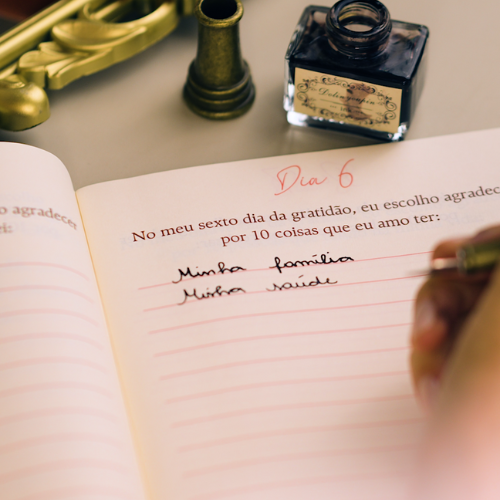 Dia 6
o agradecer
No meu sexto dia da gratidão, eu escolho agradec
por 10 coisas que eu amo ter:
Minha família
Minha saúde